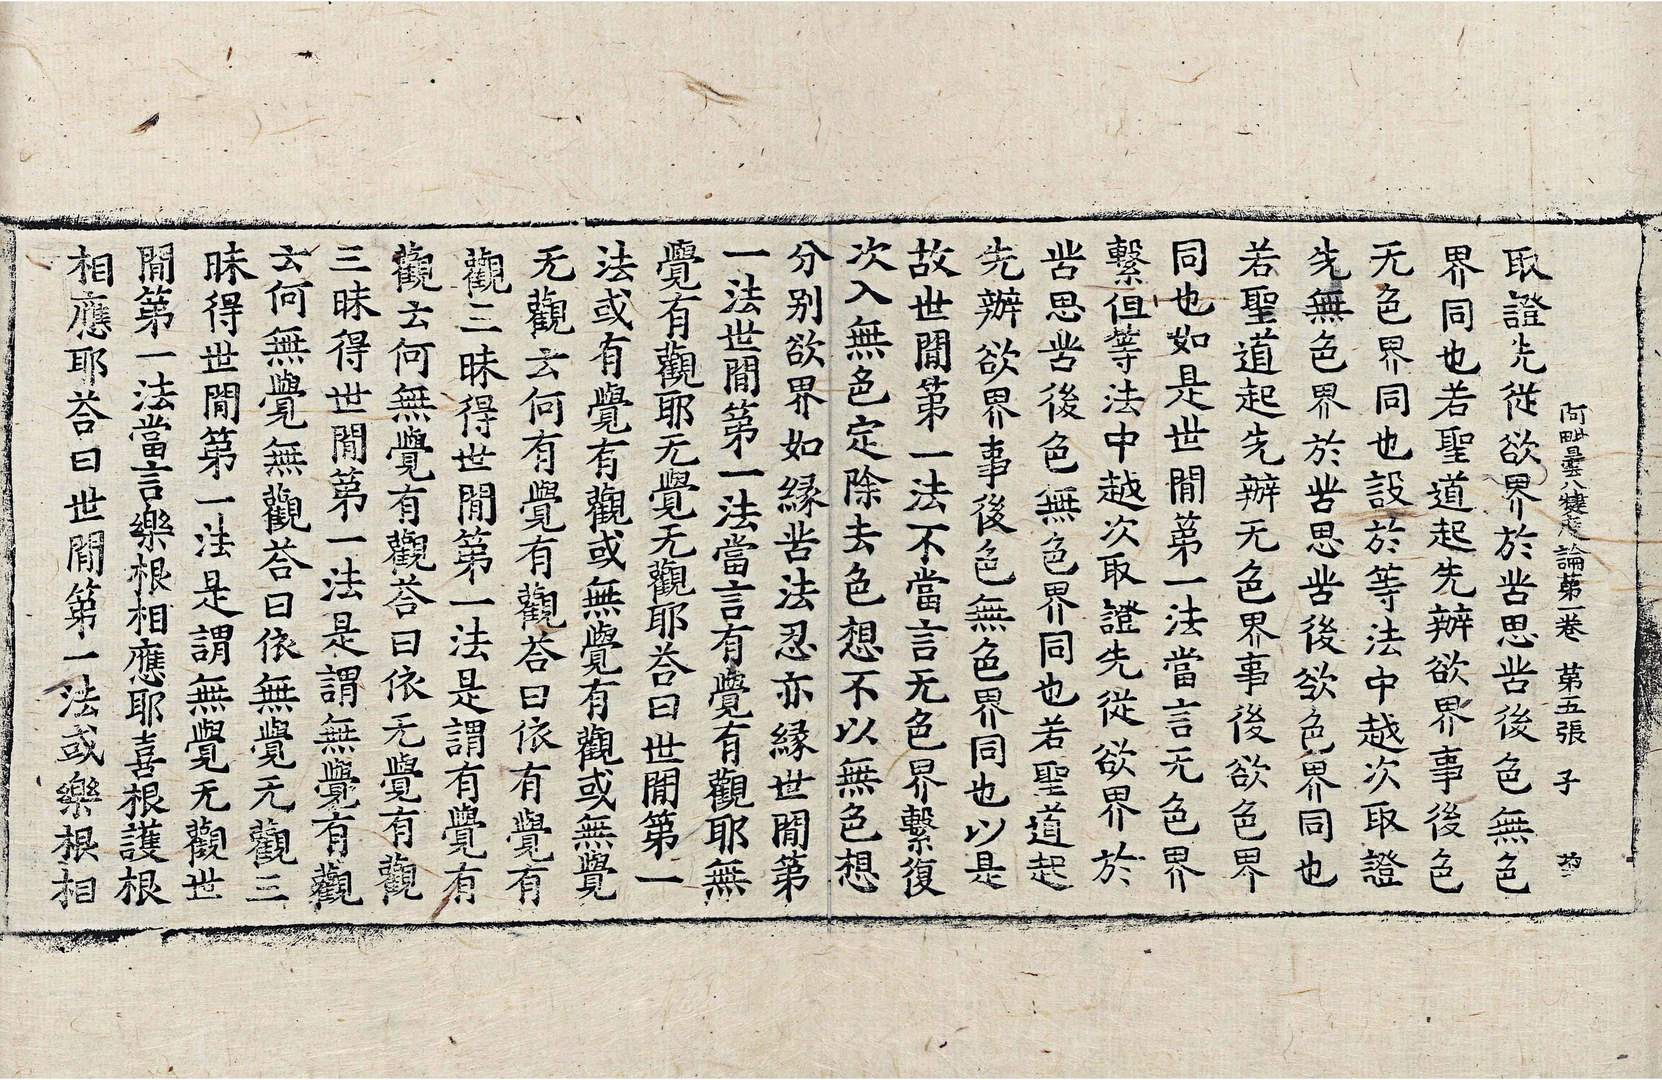 阿毗曇八揵度論第一卷 第五張 子
取證先從欲界於苦思苦後色無色
界同也若聖道起先辦欲界事後色
无色界同也設於等法中越次取證
先無色界於苦思苦後欲色界同也
若聖道起先辦无色界事後欲色界
同也如是世閒第一法當言无色界
繫但等法中越次取證先從欲界於
苦思苦後色無色界同也若聖道起
先辦欲界事後色無色界同也以是
故世閒第一法不當言无色界繫復
次入無色定除去色想不以無色想
分别欲界如縁苦法忍亦縁世閒第
一法世閒第一法當言有覺有觀耶無
覺有觀耶无覺无觀耶荅曰世閒第一
法或有覺有觀或無覺有觀或無覺
无觀云何有覺有觀荅曰依有覺有
觀三昧得世閒第一法是謂有覺有
觀云何無覺有觀荅曰依无覺有觀
三昧得世閒第一法是謂無覺有觀
云何無覺無觀荅曰依無覺无觀三
昧得世閒第一法是謂無覺无觀世
閒第一法當言樂根相應耶喜根護根
相應耶荅曰世閒第一法或樂根相